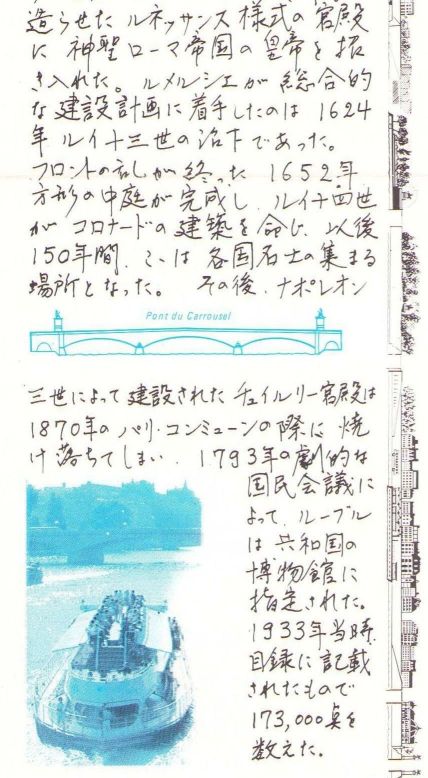 造らせた ルネッサンス 様式の 宮殿
に 神聖 ローマ帝国の 皇帝を 招
き入れた。ルメルシエが 総合的
な 建設計画に着手したのは 1624
年 ルイ十三世の治下であった。
フロントの乱が 終った 1652年
方形の中庭が 完成し、ルイ十四世
が コロナードの 建築を 命じ、以後
150年間、ここは 各国名士の集まる
場所となった。 その後、ナポレオン
Pont du Carrousel
三世によって 建設された チュイルリー宮殿は
1870年の パリ・コンミューンの際に 焼
け 落ちてしまい、1793年の劇的な
国民会議に
よって、ルーブル
は 共和国の
博物館に
指定された。
1933年当時、
目録に記載
されたもので
173,000点を
数えた。